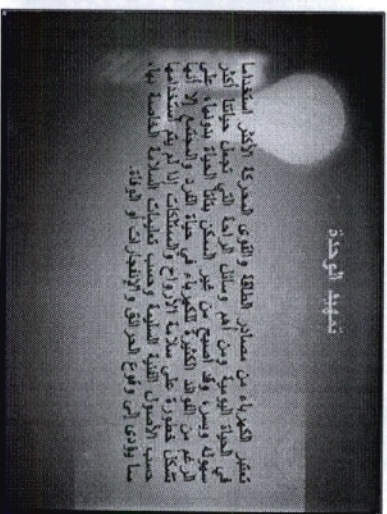 تمهيد الوحدة
تعتبر الكهرباء من مصادر الطاقة والقوى المحركة الأكثر استخداما
في الحياة اليومية ومن أهم وسائل الراحة التي تجعل حياتنا أكثر
سهولة ويسر، وقد أصبح من غير الممكن بقائنا الحياة بدونها، على
الرغم من الفوائد الكثيرة للكهرباء في حياة الفرد والمجتمع إلا أنها
تشكل خطورة على سلامة الأرواح والممتلكات إذا لم يتم استخدامها
حسب الأصول الفنية السليمة وحسب تعليمات السلامة الخاصة بها،
مما يؤدى إلى وقوع الحرائق والإنفجارات أو الوفاة.